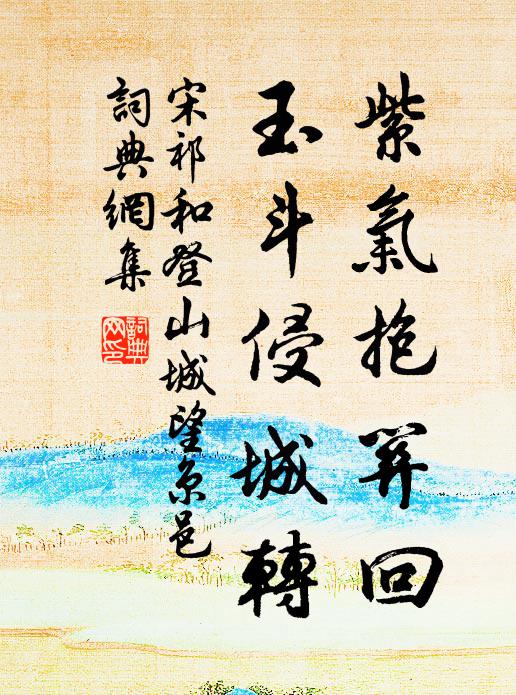 紫氣抱關回
玉斗侵城轉
宋祁和登山城望京邑
詞典網集
詞典
网印